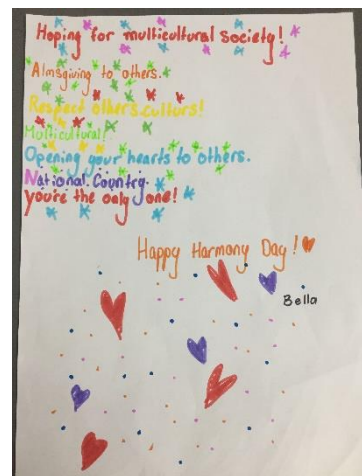 Hoping for multicultural society!
Almsgiving to others.
Respect others culturs!
Multicultural!
Opening your hearts to others.
National Country.
you're the only one!
Happy Harmony Day!
Bella